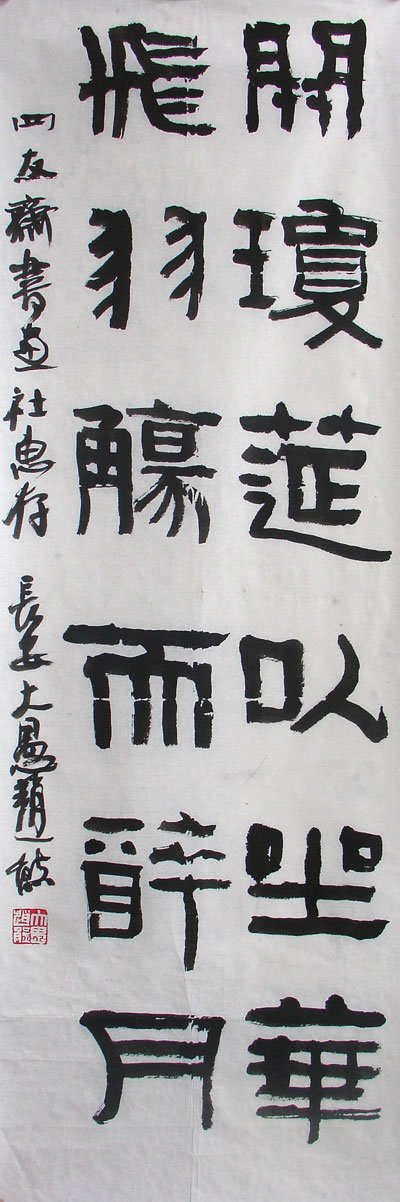 開瓊莚以坐華
飛羽觴而醉月
四友齋書画社惠存 長安大愚趙熊